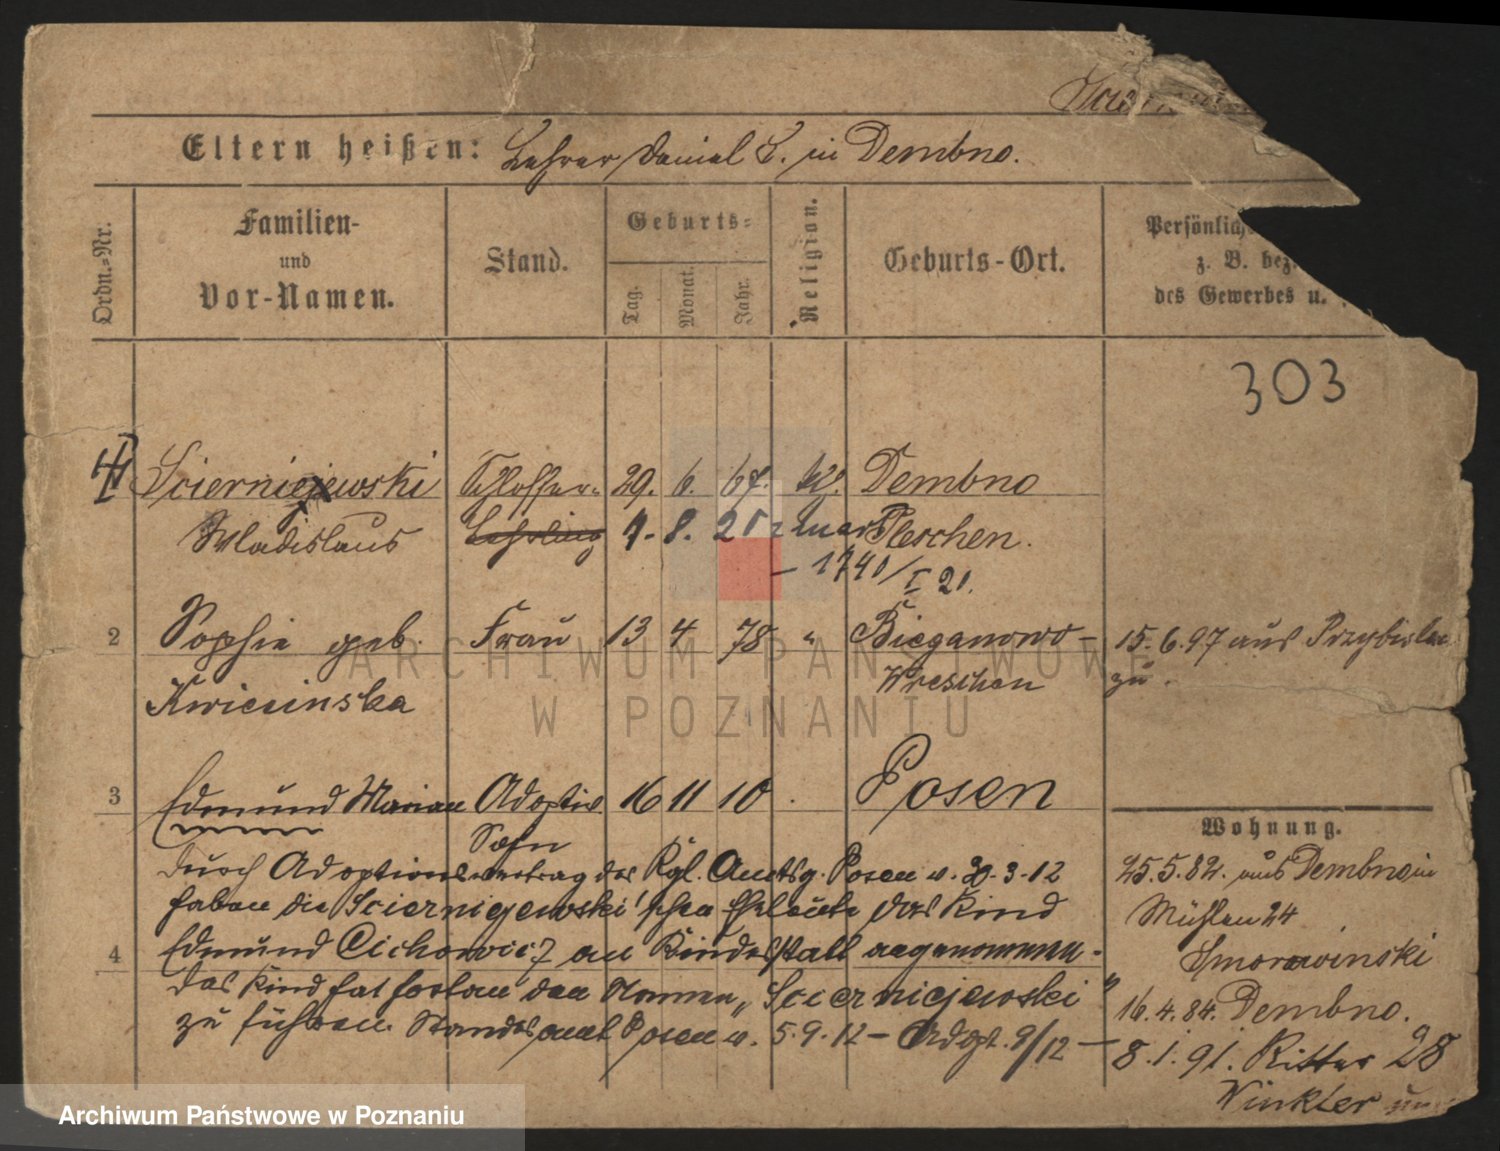 Eltern heißen: Lehrer Daniel S. in Dembno.
Ordn.=Nr.
Familien-
und
Vor-Namen.
Stand.
Geburts=
Tag.
Monat.
Jahr.
Religion.
Geburts-Ort.
Persönlich
z. B. bez.
des Gewerbes u.
303
Scierniejewski Schlosser- 29. 6. 67. Dembno
Wladislaus Lehrling Pleschen.
1740/I 20.
2 Sophie geb. Frau 13 4 78 " Bieganowo - 15.6.97 aus
Kwiecinska Wreschen zu
3 Edmund Marian Adoptiv 16 11 10 Posen
Sohn
Wohnung.
durch Adoptionsvertrag des Kgl. Amtsg. Posen v. 30.3.12
haben die Sciernigewski'schen Eheleute das Kind
4 Edmund Cichowicz an Kindesstatt angenommen -
das Kind hat fortan den Namen „Scierniejewski"
zu führen. Standesamt Posen v. 5.9.12 - Adgt. 9/12 -
25.5.82. aus Dembno in
Mühlen 24
Smorawinski
16.4.84. Dembno.
8.1.91. Ritter 28
Winkler
ARCHIWUM PAŃSTWOWE
W POZNANIU
Archiwum Państwowe w Poznaniu